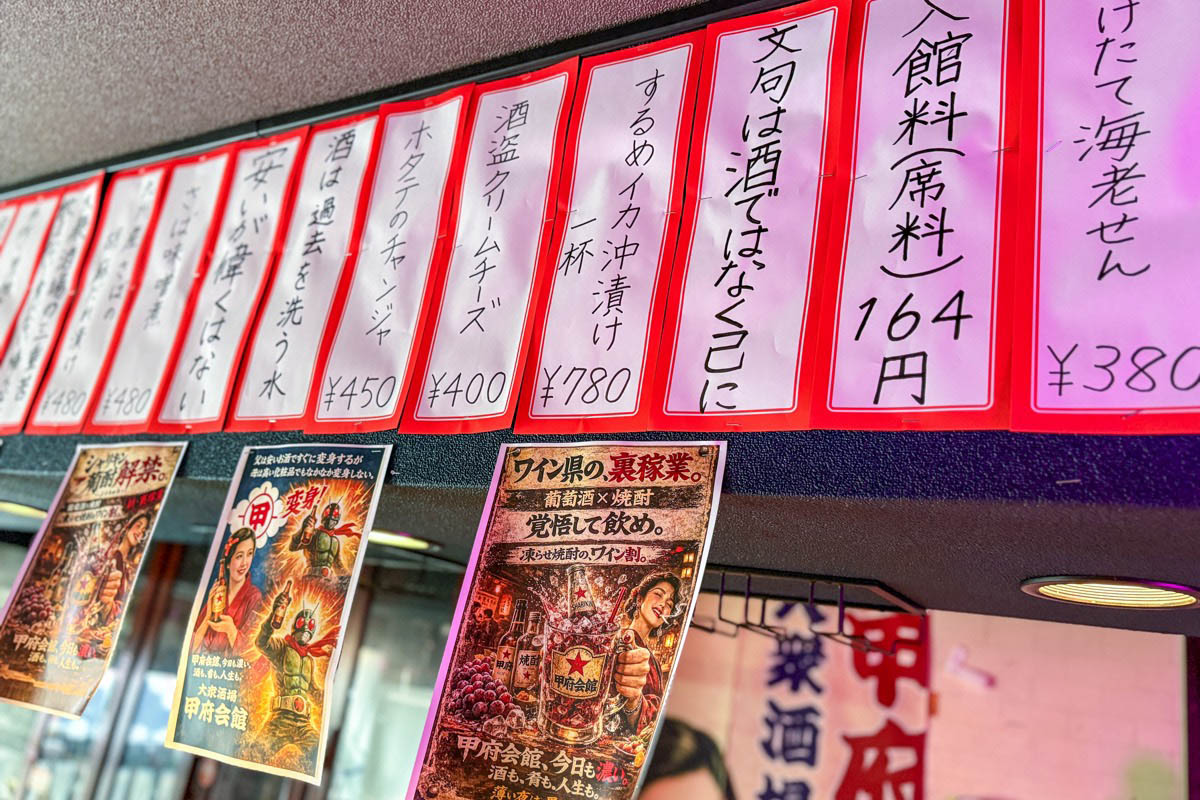 けたて海老せん
¥380
入館料(席料)
164
円
文句は酒ではなく己に
するめイカ沖漬け
一杯
¥780
酒盗クリームチーズ
¥400
ホタテのチャンジャ
¥450
酒は過去を洗う水
安いが偉くはない
さば味噌煮
¥480
¥480
解禁。
甲府会館、今日も濃い。
酒も、肴も、人生も。
父は安いお酒ですぐに変身するが
母は高い化粧品でもなかなか変身しない。
甲
変身!
甲府会館、今日も濃い。
酒も、肴も、人生も。
大衆酒場
甲府会館
ワイン県の、裏稼業。
葡萄酒×焼酎
覚悟して飲め。
凍らせ焼酎の、ワイン割。
甲府
焼酎
甲府会館
甲府会館、今日も濃い。
酒も、肴も、人生も。
大衆酒場
甲府